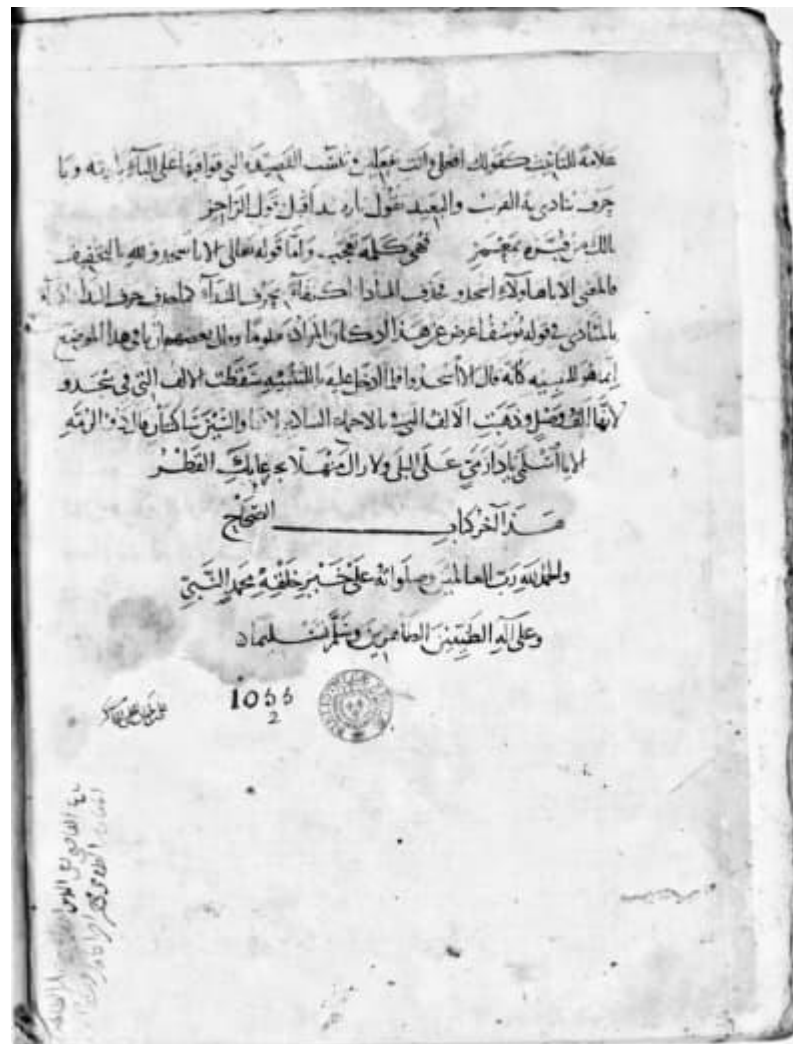 علامة للتانيث كقولك افعلي وانت تفعلين وتنسب القصيدة التي قوافيها على الياء ياوية ويا
حرف ينادى به القريب والبعيد تقول يا زيد اقبل وقول الراجز
يالك من قبرة بمعمر فهي كلمة تعجب واما قوله تعالى الا يا سجدوا لله بالتخفيف
فالمعنى الا يا هاولاء اسجدو فحذف المنادا اكتفاء بحرف النداء كما حذف حرف النداء
بالمنادى في قوله يوسف اعرض عن هذا اذ كان المراد معلوما وقال بعضهم ان يا في هذا الموضع
انما هو للتنبيه كانه قال الا اسجدوا فلما ادخل عليه يا للتنبيه سقطت الالف التي في اسجدو
لانها الف وصل وذهبت الالف التي في يا لاجتماع الساكنين لانها والسين ساكنتان قال ذو الرمة
الا يا اسلمي يا دار مي على البلى ولا زال منهلا بجرعايك القطر
هذا آخر كتاب الصحاح
والحمد لله رب العالمين وصلواته على خير خلقه محمد النبي
وعلى آله الطيبين الطاهرين وسلم تسليما
1055
2